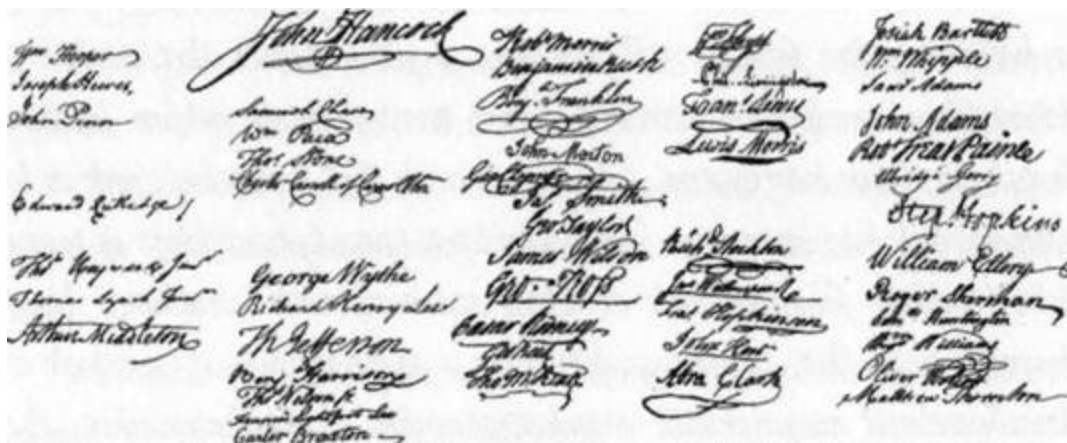 Wm Hooper
Joseph Hewes,
John Penn
Edward Rutledge /
Thos Heyward Junr
Thomas Lynch Junr
Arthur Middleton
John Hancock
Samuel Chase
Wm Paca
Thos Stone
Charles Carroll of Carrollton
George Wythe
Richard Henry Lee
Th Jefferson
Benj Harrison
Thos Nelson jr
Francis Lightfoot Lee
Carter Braxton
Robt Morris
Benjamin Rush
Benj Franklin
John Morton
Geo Clymer
Jas Smith
Geo Taylor
James Wilson
Geo Ross
Caesar Rodney
Geo Read
Tho M:Kean
Wm Floyd
Phil. Livingston
Frans Lewis
Lewis Morris
Richd Stockton
Jno Witherspoon
Fras Hopkinson
John Hart
Abra Clark
Josiah Bartlett
Wm Whipple
Saml Adams
John Adams
Robt Treat Paine
Elbridge Gerry
Step Hopkins
William Ellery
Roger Sherman
Saml Huntington
Wm Williams
Oliver Wolcott
Matthew Thornton